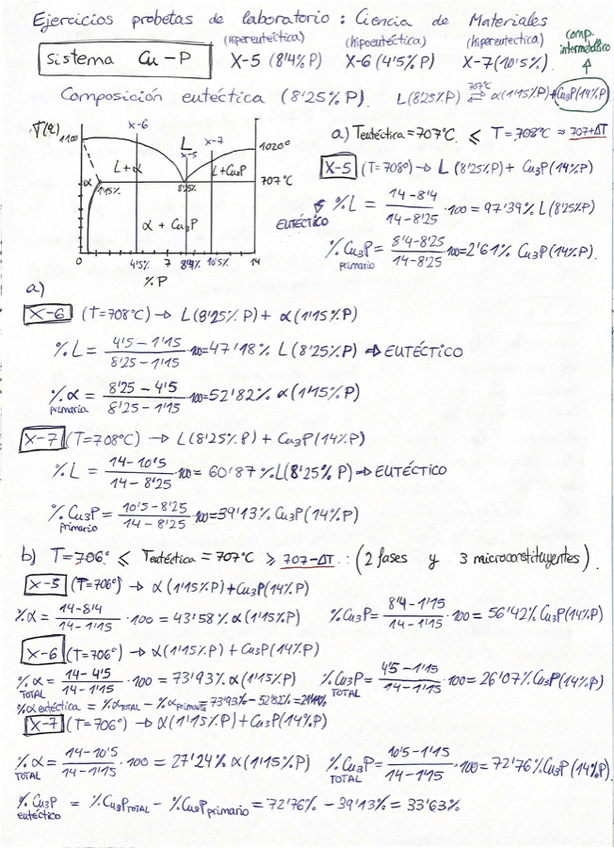 Ejercicios probetas de laboratorio : Ciencia de Materiales
(hipereutéctica) (hipoeutéctica) (hipereutéctica) comp. intermetálico
Sistema Cu-P X-5 (8'4%P) X-6 (4'5%P) X-7 (10'5%)
Composición eutéctica (8'25%P). L(8'25%P) 707ºC ⇄ α(1'15%P)+Cu3P(14%P)
T(ºC) 1100
X-6
L
X-5
X-7
1020º
L+α
L+Cu3P
α
1'15%
8'25%
707ºC
α + Cu3P
0 4'5% 7 8'4% 10'5% 14
% P
a) Teutéctica=707ºC ≤ T=708ºC ≈ 707+ΔT
X-5 (T=708º) → L (8'25%P) + Cu3P(14%P)
EUTÉCTICO
%L = 14-8'4 / 14-8'25 · 100 = 97'39% L(8'25%P)
%Cu3P primario = 8'4-8'25 / 14-8'25 · 100=2'61% Cu3P(14%P).
a)
X-6 (T=708ºC) → L(8'25%P) + α(1'15%P)
%L = 4'5-1'15 / 8'25-1'15 · 100=47'18% L(8'25%P) ⇒ EUTÉCTICO
%α primaria = 8'25-4'5 / 8'25-1'15 · 100=52'82% α(1'15%P)
X-7 (T=708ºC) → L(8'25%P) + Cu3P(14%P)
%L = 14-10'5 / 14-8'25 · 100= 60'87 %L(8'25%P) ⇒ EUTÉCTICO
%Cu3P primario = 10'5-8'25 / 14-8'25 · 100=39'13% Cu3P(14%P)
b) T=706º ≤ Teutéctica = 707ºC ≥ 707-ΔT.: (2 fases y 3 microconstituyentes).
X-5 (T=706º) → α(1'15%P)+Cu3P(14%P)
%α = 14-8'4 / 14-1'15 · 100 = 43'58% α(1'15%P) %Cu3P= 8'4-1'15 / 14-1'15 · 100= 56'42% Cu3P(14%P)
X-6 (T=706º) → α(1'15%P) + Cu3P(14%P)
%α TOTAL = 14-4'5 / 14-1'15 · 100 = 73'93% α(1'15%P) %Cu3P TOTAL = 4'5-1'15 / 14-1'15 · 100= 26'07% Cu3P(14%P)
%α eutéctica = %αTOTAL - %αprimaria= 73'93% - 52'82%=
X-7 (T=706º) → α(1'15%P)+Cu3P(14%P)
%α TOTAL = 14-10'5 / 14-1'15 · 100 = 27'24% α(1'15%P) %Cu3P TOTAL = 10'5-1'15 / 14-1'15 · 100= 72'76%Cu3P(14%P).
%Cu3P eutéctico = %Cu3PTOTAL - %Cu3Pprimario = 72'76% - 39'13% = 33'63%